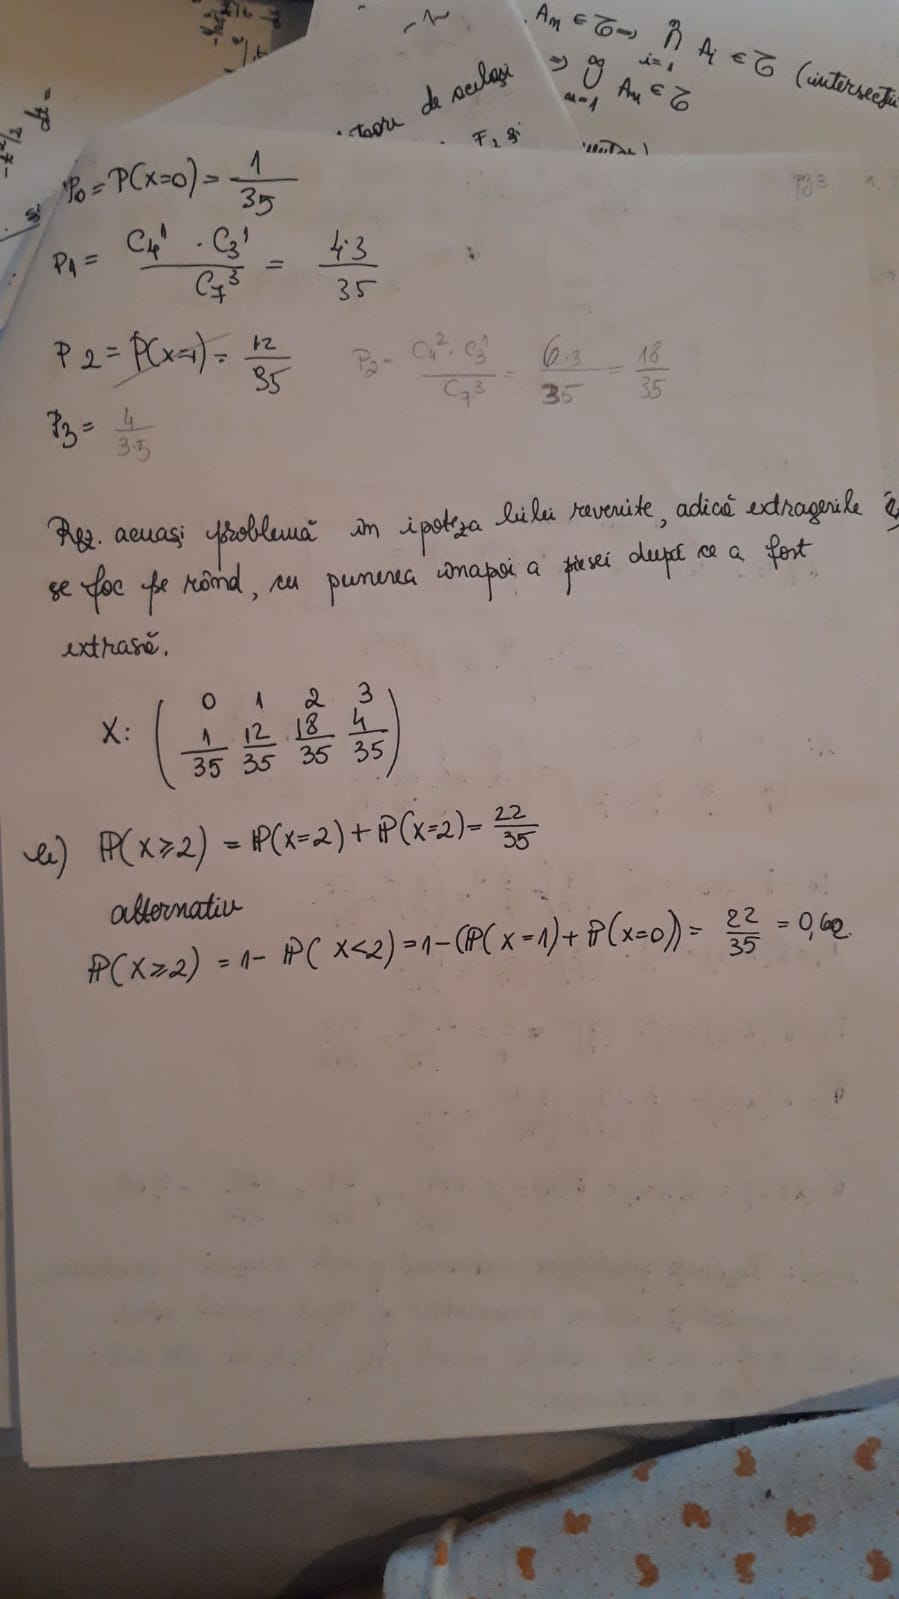 An ∈ 𝒯 ⇒ ∩ i=1 Ai ∈ 𝒯 (intersecții
⇒ ∞ ∪ n=1 An ∈ 𝒯
de același
F2 și
pg 3
P0 = P(x=0) = 1/35
P1 = C4^1 · C3^1 / C7^3 = 4·3/35
P2 = P(x=1) = 12/35 P2 = C4^2 · C3^1 / C7^3 = 6·3/35 = 18/35
P3 = 4/35
Rez. aceuași problemă în ipoteza bilei revenite, adică extragerile
se fac pe rând, cu punerea înapoi a piesei după ce a fost
extrasă.
X: ( 0 1 2 3
1/35 12/35 18/35 4/35 )
P(X≥2) = P(x=2) + P(x=2) = 22/35
alternativ
P(X≥2) = 1 - P(X<2) = 1 - (P(x=1) + P(x=0)) = 22/35 = 0,62.